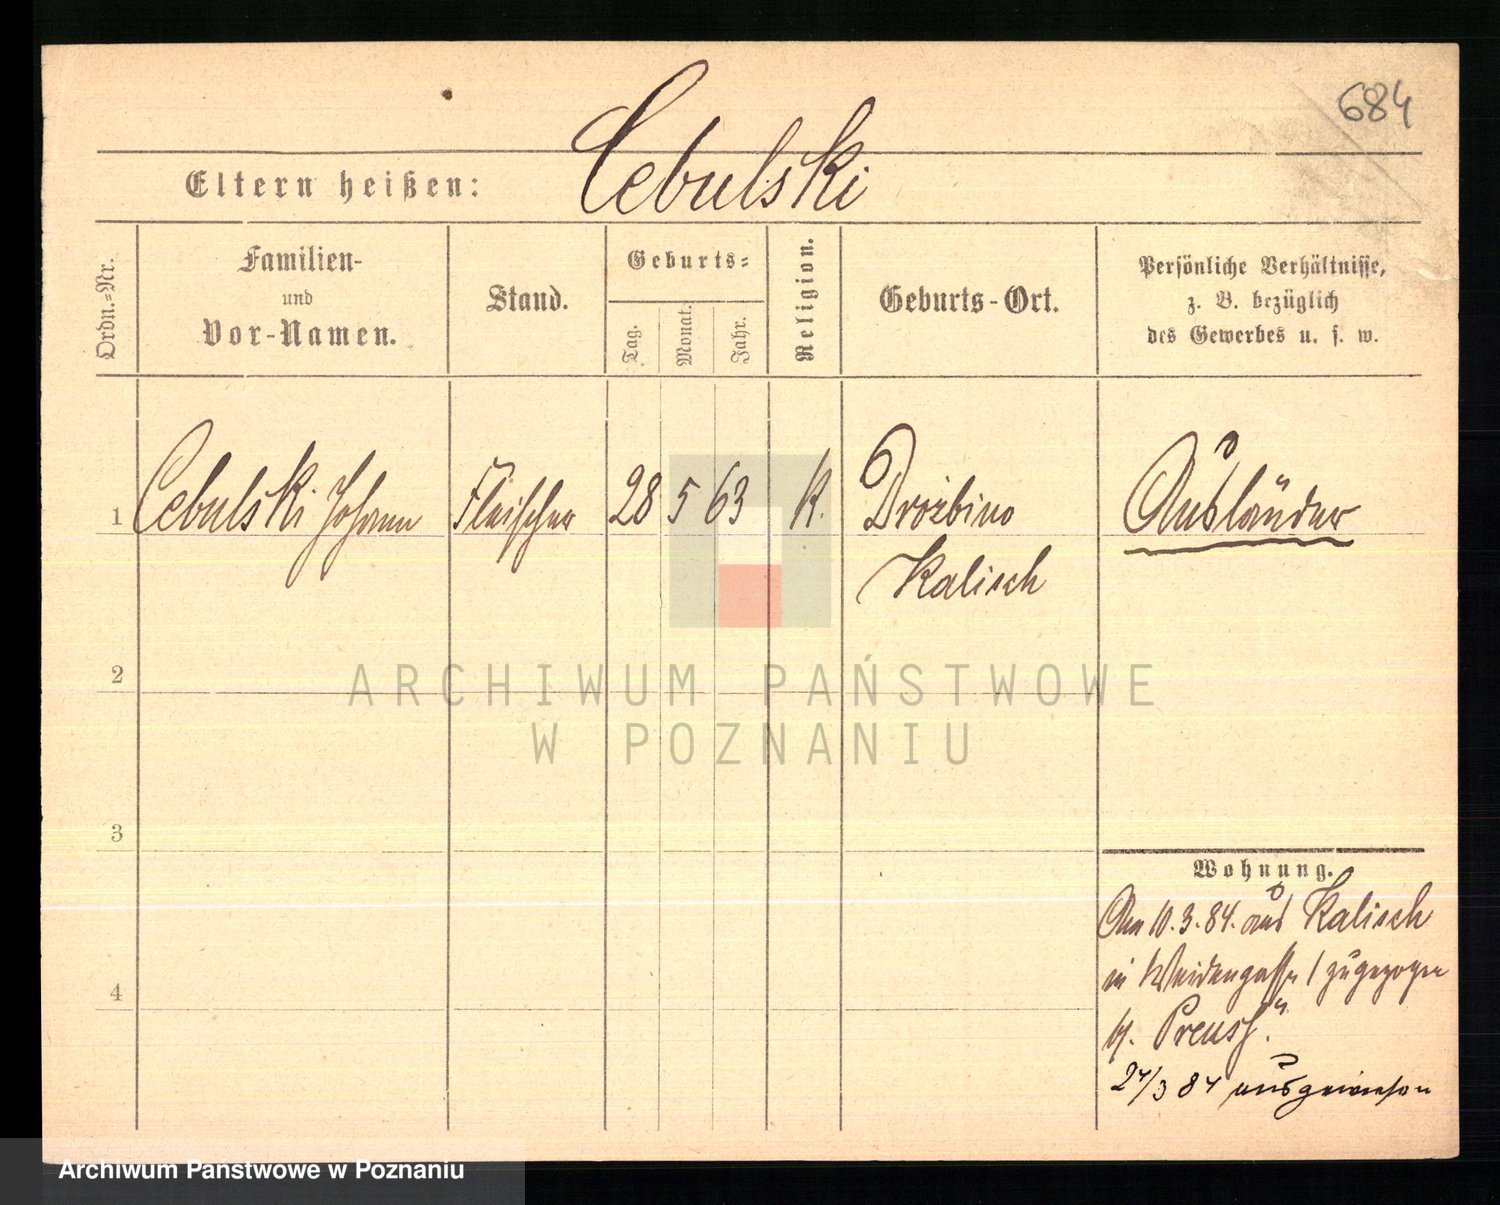 684
Cebulski
Eltern heißen:
Ordn.=Nr.
Familien-
und
Vor-Namen.
Stand.
Geburts=
Tag.
Monat.
Jahr.
Religion.
Geburts-Ort.
Persönliche Verhältnisse,
z. B. bezüglich
des Gewerbes u. s. w.
1 Cebulski Johann Fleischer 28 5 63 K. Drożbino Ausländer
Kalisch
2
ARCHIWUM PAŃSTWOWE
W POZNANIU
3
Wohnung.
Am 10.3.84. aus Kalisch
in Weidengasse 1 zugezogen
b/.
24/3 84 ausgewiesen
4
Archiwum Państwowe w Poznaniu